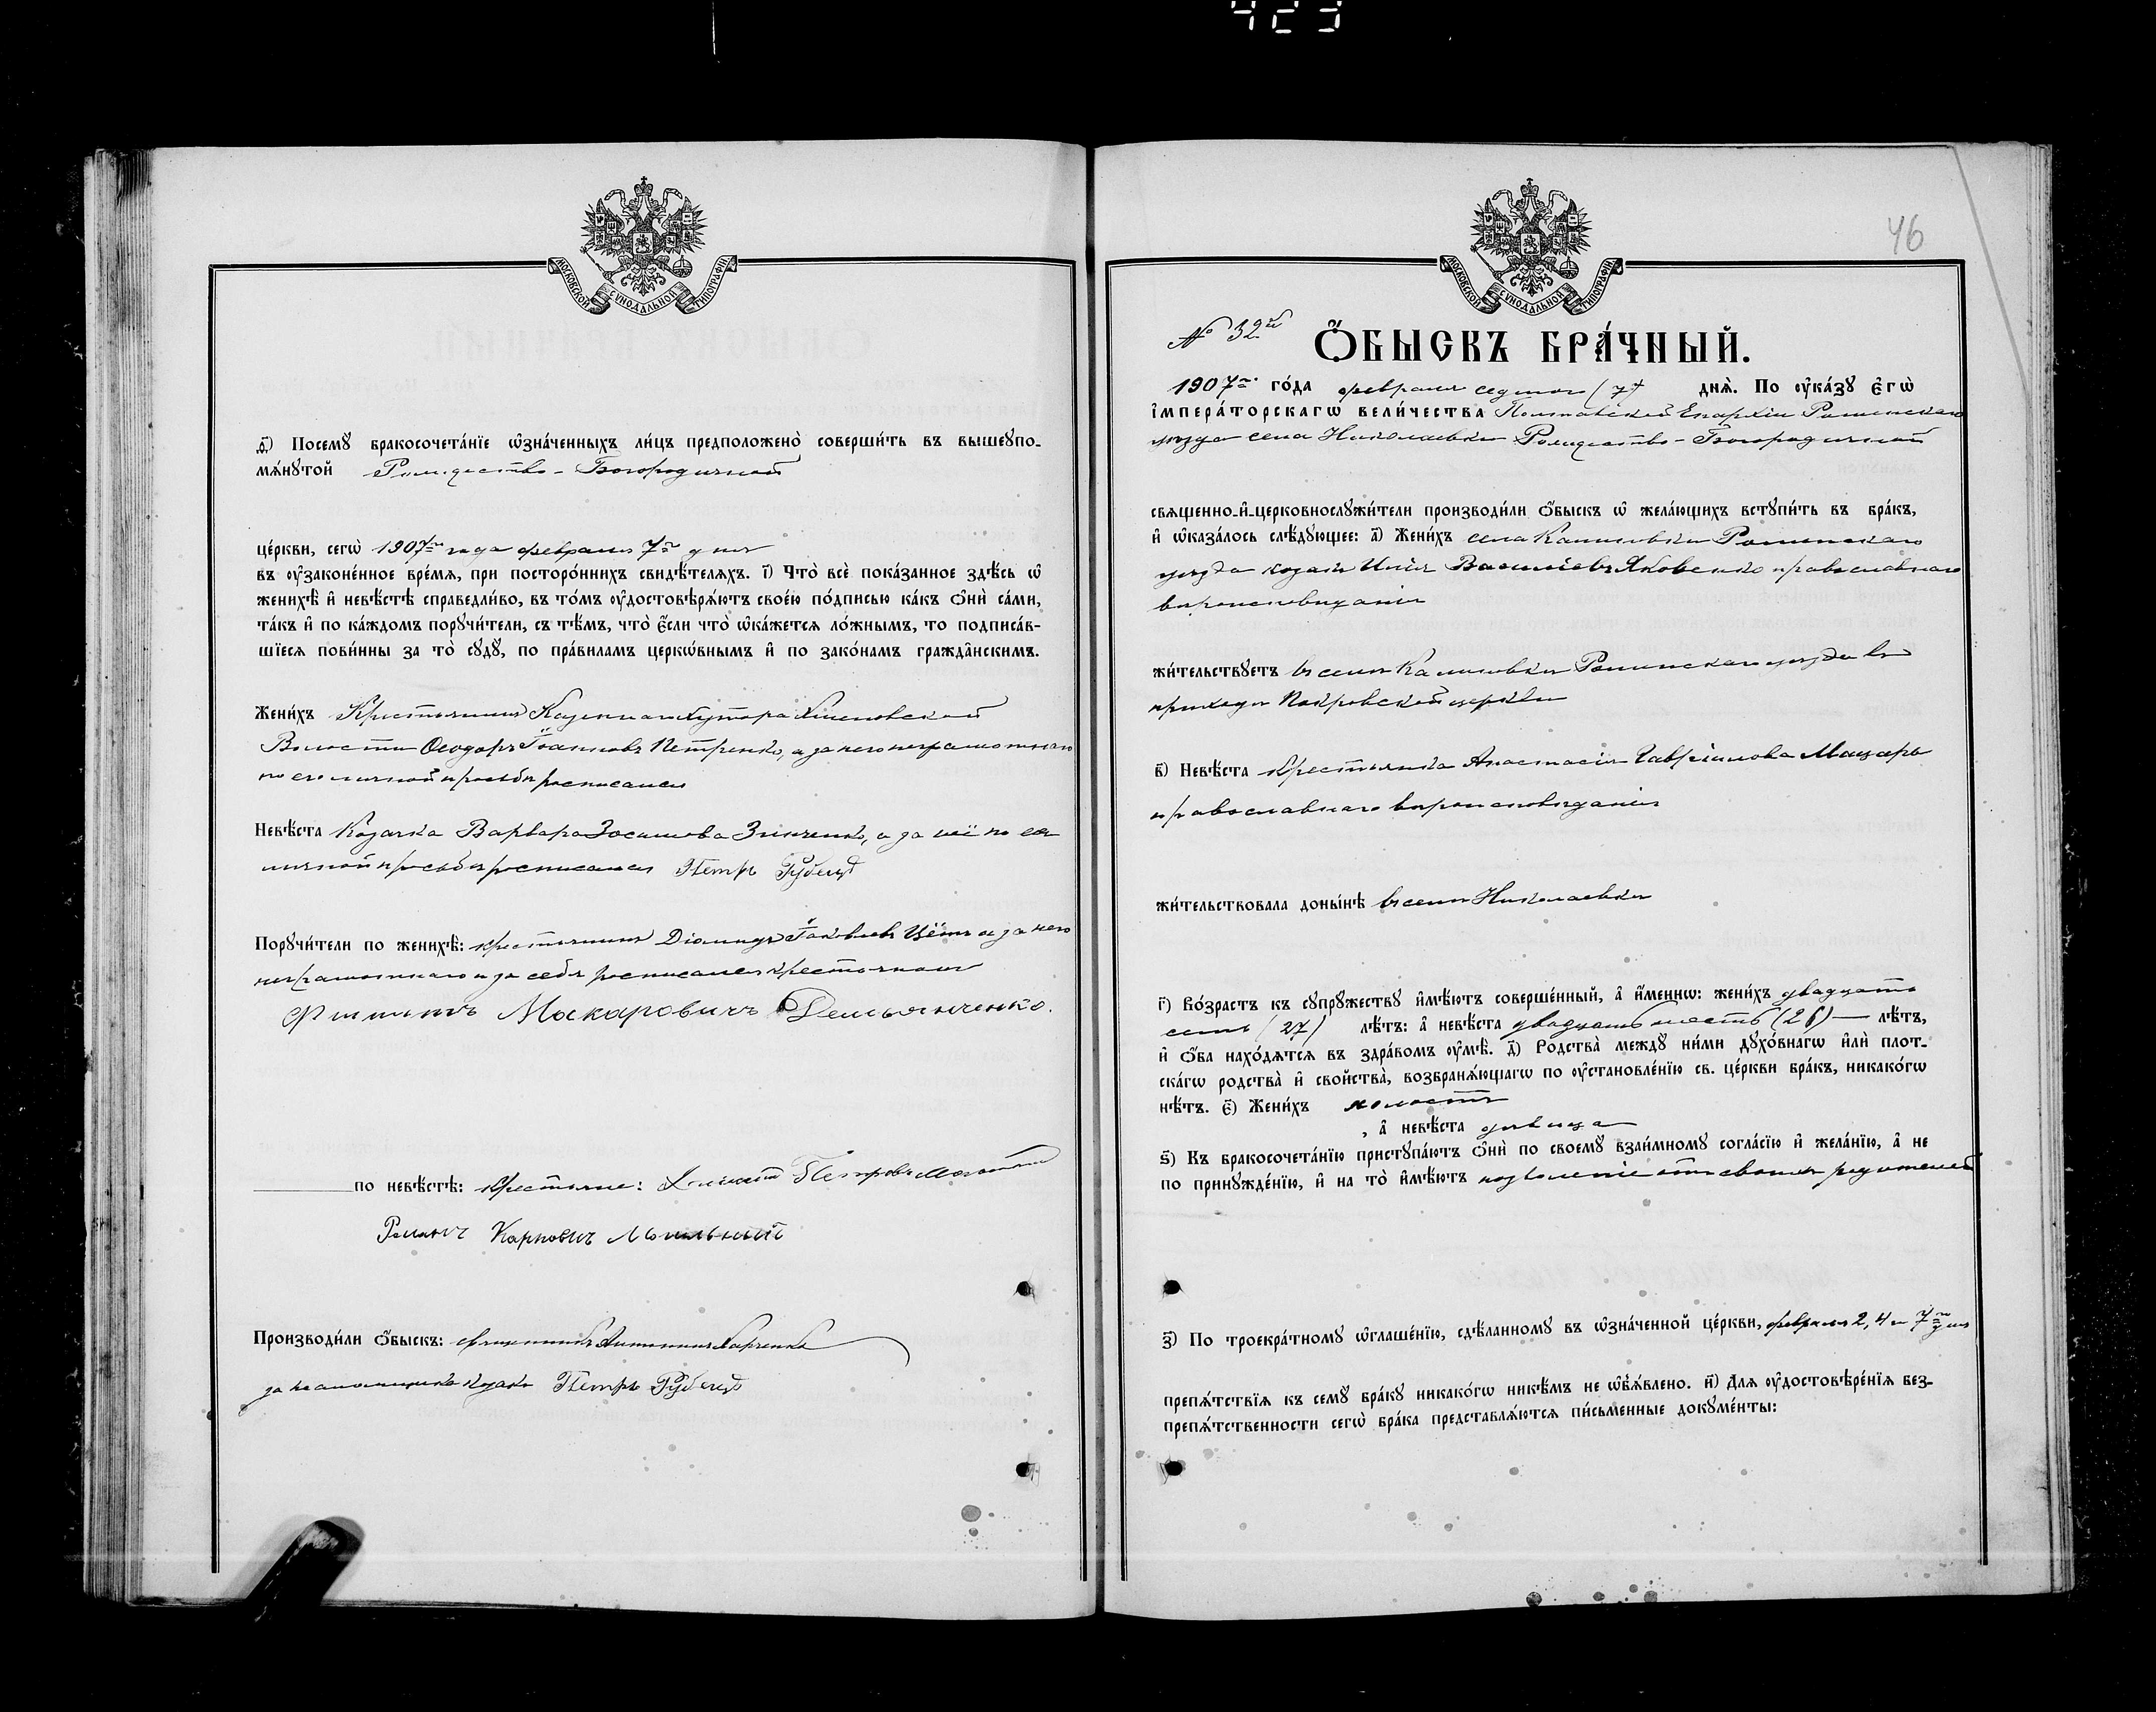 423
МОСКОВСКОЙ СѴНОДАЛЬНОЙ ТИПОГРАФІИ
д҃) Посемꙋ̀ бракосочета́нїе ѡ҆зна́ченныхъ ли́цъ предположено̀ соверши́ть въ вышеꙋпо-
мѧ́нꙋтой Рождество-Богородичной
це́ркви, сегѡ̀ 1907го года февраля 7го дня
въ ᲂу҆законе́нное вре́мѧ, при посторо́ннихъ свидѣ́телѧхъ. і҃) Что̀ всѐ пока́занное здѣ́сь ѡ҆
женихѣ̀ и҆ невѣ́стѣ справедли́во, въ то́мъ ᲂу҆достовѣрѧ́ютъ свое́ю по́дписью ка́къ ѻ҆нѝ са́ми,
та́къ и҆ по ка́ждомъ порꙋчи́тели, съ тѣ́мъ, что̀ є҆́сли что̀ ѡ҆ка́жетсѧ ло́жнымъ, то подписа́в-
шїесѧ пови́нны за то̀ сꙋдꙋ̀, по пра́виламъ церко́внымъ и҆ по зако́намъ гражда́нскимъ.
Жени́хъ Крестьянинъ хутора
Волости Ѳеодоръ Іоанновъ Петренко, а за него неграмотнаго
по его личной просьбѣ росписался
Невѣ́ста Козачка Варвара Зосимова Зинченко, а за неё по ея
личной просьбѣ росписался Петръ Рубецъ
Порꙋчи́тели по женихѣ̀: крестьянинъ Діомидъ Іаковлевъ и за него
неграмотнаго и за себя росписался крестьянинъ
Филиппъ Макаровичъ Демьянченко.
по невѣ́стѣ: крестьяне: Петровъ
Романъ Карповичъ
Производи́ли ѻ҆́быскъ: священникъ Харченко
за псаломщика козакъ Петръ Рубецъ
46
МОСКОВСКОЙ СѴНОДАЛЬНОЙ ТИПОГРАФІИ
№ 32й
Ѻ҆́БЫСКЪ БРА́ЧНЫЙ.
1907го го́да февраля седмого (7) днѧ̀. По ᲂу҆ка́зꙋ є҆гѡ̀
і҆мпера́торскагѡ вели́чества Полтавской Епархіи Роменскаго
уѣзда села Николаевки Рождество-Богородичной
свѧщенно-и҆-церковнослꙋжи́тели производи́ли ѻ҆́быскъ ѡ҆ жела́ющихъ встꙋпи́ть въ бра́къ,
и҆ ѡ҆каза́лось слѣ́дꙋющее: а҃) Жени́хъ села Калиновки Роменскаго
уѣзда козакъ Илія Василіевъ Яковенко православнаго
вѣроисповѣданія
жи́тельствꙋетъ въ селѣ Калиновкѣ Роменскаго уѣзда въ
приходѣ Покровской церкви
в҃) Невѣ́ста крестьянка Анастасія Гавріилова Мацарь
православнаго вѣроисповѣданія
жи́тельствовала доны́нѣ въ селѣ Николаевкѣ
г҃) Во́зрастъ къ сꙋпрꙋ́жествꙋ и҆мѣ́ютъ соверше́нный, а҆ и҆́меннѡ: жени́хъ двадцать
семь (27) лѣ́тъ: а҆ невѣ́ста двадцать шесть (26) — лѣ́тъ,
и҆ ѻ҆́ба нахо́дѧтсѧ въ здра́вомъ ᲂу҆мѣ̀. д҃) Родства̀ междꙋ̀ ни́ми дꙋхо́внагѡ и҆лѝ плот-
ска́гѡ родства̀ и҆ свойства̀, возбранѧ́ющагѡ по ᲂу҆становле́нїю св. це́ркви бра́къ, никако́гѡ
нѣ́тъ. є҃) Жени́хъ холостъ
, а҆ невѣ́ста дѣвица
ѕ҃) Къ бракосочета́нїю пристꙋпа́ютъ ѻ҆нѝ по своемꙋ̀ взаи́мномꙋ согла́сїю и҆ жела́нїю, а҆ не
по принꙋжде́нїю, и҆ на то̀ и҆мѣ́ютъ позволеніе отъ своихъ родителей
з҃) По троекра́тномꙋ ѡ҆глаше́нїю, сдѣ́ланномꙋ въ ѡ҆зна́ченной це́ркви, февраля 2, 4 и 7го дня
препѧ́тствїѧ къ семꙋ̀ бра́кꙋ никако́гѡ никѣ́мъ не ѡ҆б̾ѧ́влено. и҃) Длѧ ᲂу҆достовѣре́нїѧ без-
препѧ́тственности сегѡ̀ бра́ка представлѧ́ютсѧ пи́сьменные докꙋме́нты: